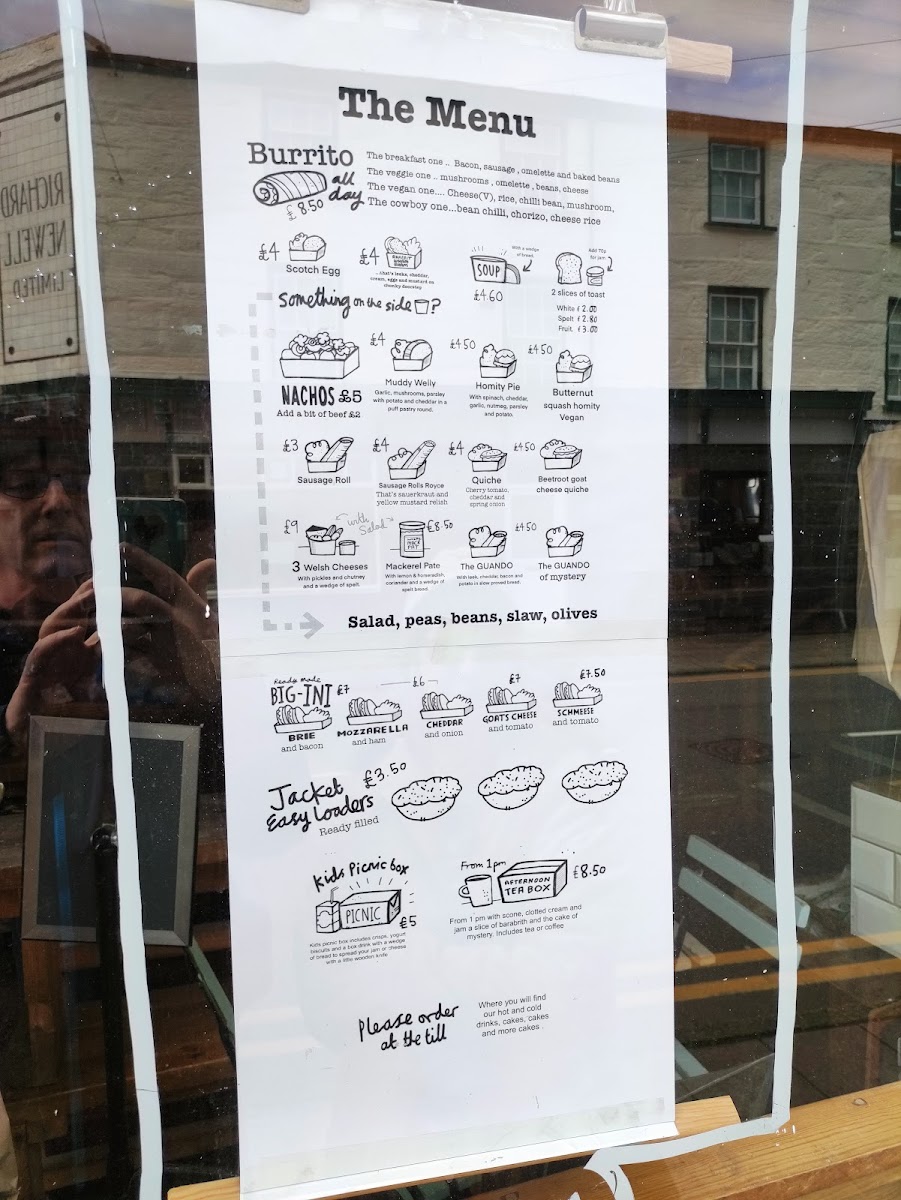 The Menu
Burrito
all day
£8.50
The breakfast one .. Bacon, sausage , omelette and baked beans
The veggie one .. mushrooms , omelette , beans, cheese
The vegan one.... Cheese(V), rice, chilli bean, mushroom,
The cowboy one...bean chilli, chorizo, cheese rice
£4
Scotch Egg
£4
That's leeks, cheddar,
onion, eggs and mustard on
chunky doorstep
SOUP
With a wedge
of bread
£4.60
Add 70p
for jam
2 slices of toast
White £2.00
Spelt £2.80
Fruit £3.00
Something on the side?
NACHOS £5
Add a bit of beef £2
£4
Muddy Welly
Garlic, mushrooms, parsley
with potato and cheddar in a
puff pastry round.
£4.50
Homity Pie
With spinach, cheddar,
garlic, nutmeg, parsley
and potato.
£4.50
Butternut
squash homity
Vegan
£3
Sausage Roll
£4
Sausage Rolls Royce
That's sauerkraut and
yellow mustard relish
£4
Quiche
Cherry tomato,
cheddar and
spring onion
£4.50
Beetroot goat
cheese quiche
£9
3 Welsh Cheeses
With pickles and chutney
and a wedge of spelt.
with Salad
£8.50
Mackerel Pate
With lemon & horseradish,
coriander and a wedge of
spelt bread.
The GUANDO
With leek, cheddar, bacon and
potato in slow proved bread.
£4.50
The GUANDO
of mystery
Salad, peas, beans, slaw, olives
Ready made
BIG-INI
£7
BRIE
and bacon
£6
MOZZARELLA
and ham
CHEDDAR
and onion
£7
GOATS CHEESE
and tomato
£7.50
SCHMEESE
and tomato
Jacket £3.50
Easy Loaders
Ready filled
Kids Picnic box
PICNIC
£5
Kids picnic box includes crisps, yogurt
biscuits and a box drink with a wedge
of bread to spread your jam or cheese
with a little wooden knife
From 1pm
AFTERNOON
TEA BOX
£8.50
From 1 pm with scone, clotted cream and
jam a slice of barabrith and the cake of
mystery. Includes tea or coffee
Please order
at the till
Where you will find
our hot and cold
drinks, cakes, cakes
and more cakes .
RICHARD
NEWELL
LIMITED